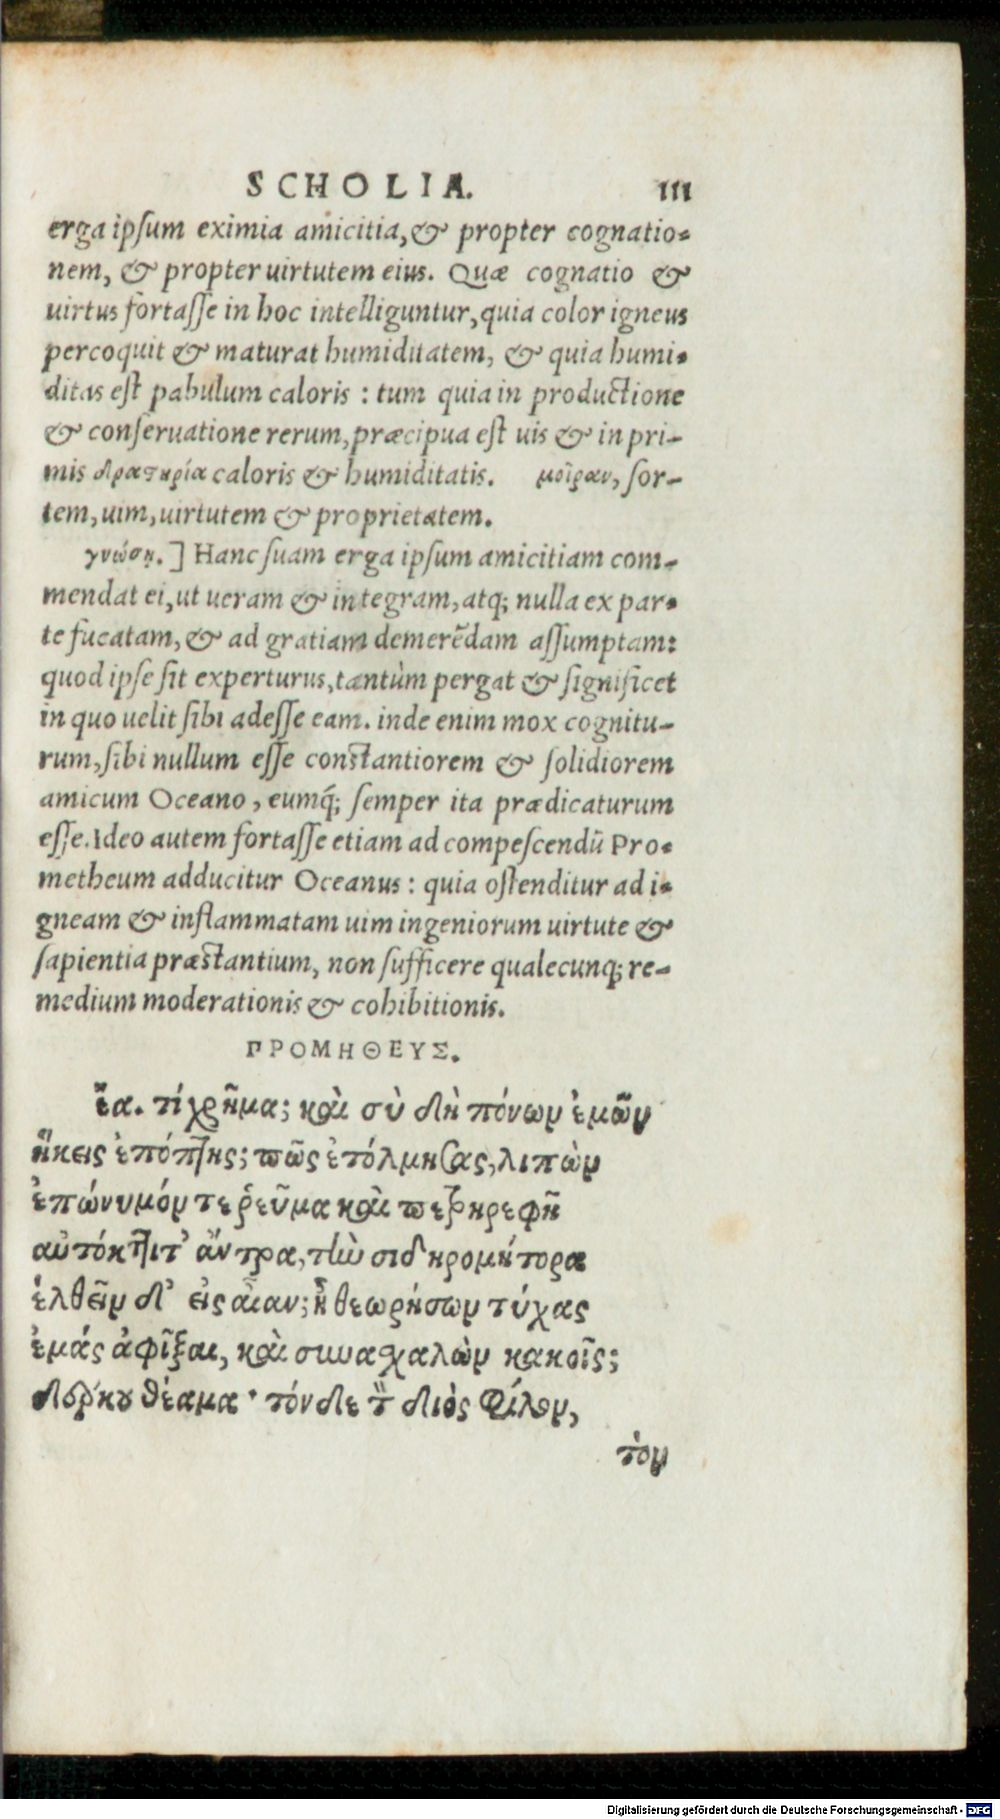 SCHOLIA. 111
erga ipsum eximia amicitia, & propter cognatio-
nem, & propter uirtutem eius. Quæ cognatio &
uirtus fortasse in hoc intelliguntur, quia color igneus
percoquit & maturat humiditatem, & quia humi-
ditas est pabulum caloris : tum quia in productione
& conseruatione rerum, præcipua est uis & in pri-
mis δραστηρία caloris & humiditatis. μοῖραν, sor-
tem, uim, uirtutem & proprietatem.
γνώσῃ.] Hanc suam erga ipsum amicitiam com-
mendat ei, ut ueram & integram, atq; nulla ex par-
te fucatam, & ad gratiam demerẽdam assumptam:
quod ipse sit experturus, tantùm pergat & significet
in quo uelit sibi adesse eam. inde enim mox cognitu-
rum, sibi nullum esse constantiorem & solidiorem
amicum Oceano, eumq́; semper ita prædicaturum
esse. Ideo autem fortasse etiam ad compescendũ Pro-
metheum adducitur Oceanus : quia ostenditur ad i-
gneam & inflammatam uim ingeniorum uirtute &
sapientia præstantium, non sufficere qualecunq; re-
medium moderationis & cohibitionis.
ΠΡΟΜΗΘΕΥΣ.
ἔα. τί χρῆμα; καὶ σὺ δὴ πόνων ἐμῶν
ἥκεις ἐπόπτης; πῶς ἐτόλμησας, λιπὼν
ἐπώνυμόν τε ῥεῦμα καὶ πετρηρεφῆ
αὐτόκτιτ' ἄντρα, τὴν σιδηρομήτορα
ἐλθεῖν δ' εἰς αἶαν; ἦ θεωρήσων τύχας
ἐμάς ἀφῖξαι, καὶ συναχαλὼν κακοῖς;
δέρκου θέαμα · τόνδε τ̀ διὸς φίλον,
τὸν
Digitalisierung gefördert durch die Deutsche Forschungsgemeinschaft - DFG